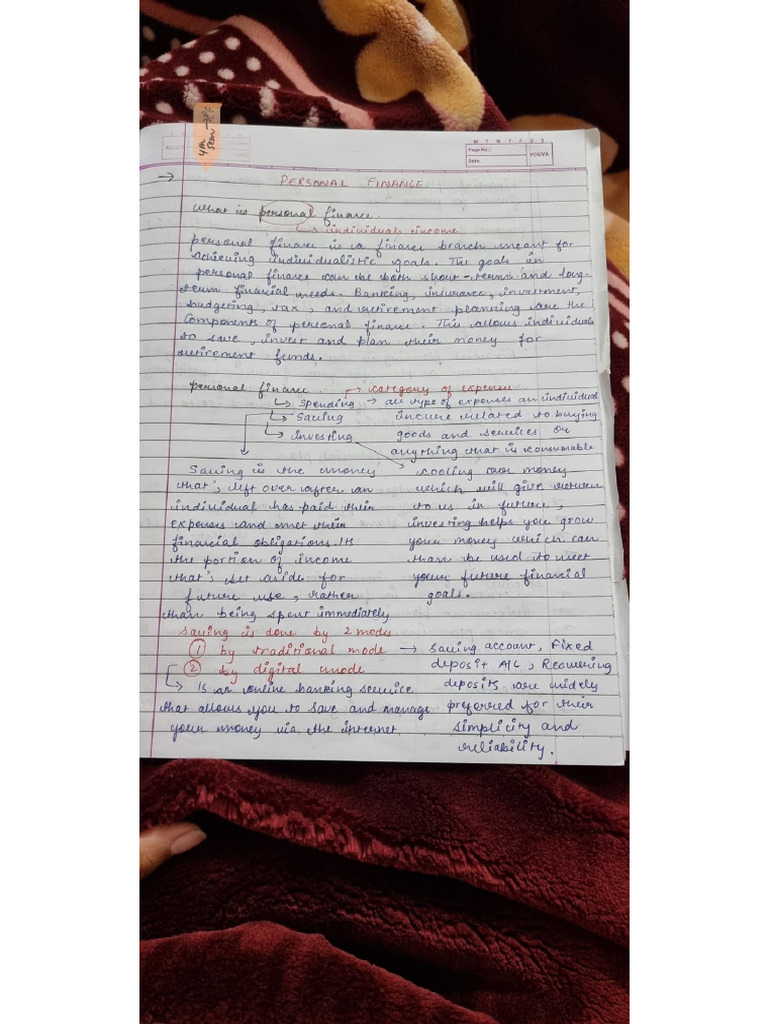 4th sem → P.F
M T W T F S S
Page No.:
Date:
YOUVA
→ PERSONAL FINANCE
What is personal finance.
↳ individuals income
personal finance is a finance branch meant for
achieving individualistic goals. The goals in
personal finance can be both short-term and long-
term financial needs. Banking, insurance, investment,
budgeting, tax, and retirement planning are the
components of personal finance. This allows individuals
to save, invest and plan their money for
retirement funds.
personal finance → category of expenses
↳ spending → all type of expenses an individual
↳ Saving incure related to buying
↳ investing goods and services or
anything that is consumable
Saving is the money
that's left over after an
individual has paid their
expenses and met their
financial obligations. It's
the portion of income
that's set aside for
future use, rather
than being spent immediately
cooling our money
which will give return
to us in future,
investing helps you grow
your money which can
than be used to meet
your future financial
goals.
Saving is done by 2 modes
① by traditional mode → Saving account, Fixed
deposit A/C, Recurring
deposits are widely
preferred for their
simplicity and
reliability.
② by digital mode
↳ Is an online banking service
that allows you to save and manage
your money via the internet.